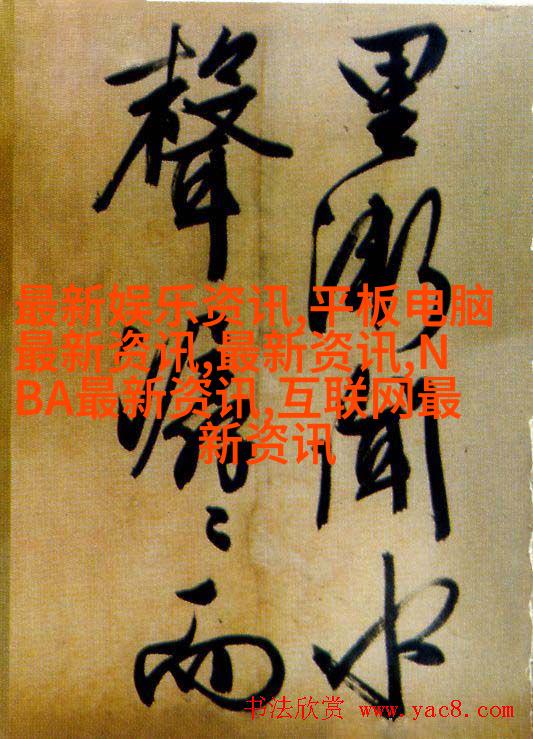 里渐闻水
聲潺々而
最新娱乐资讯,平板电脑
最新资讯,最新资讯,N
BA最新资讯,互联网最
新资讯
书法欣赏 www.yac8.com